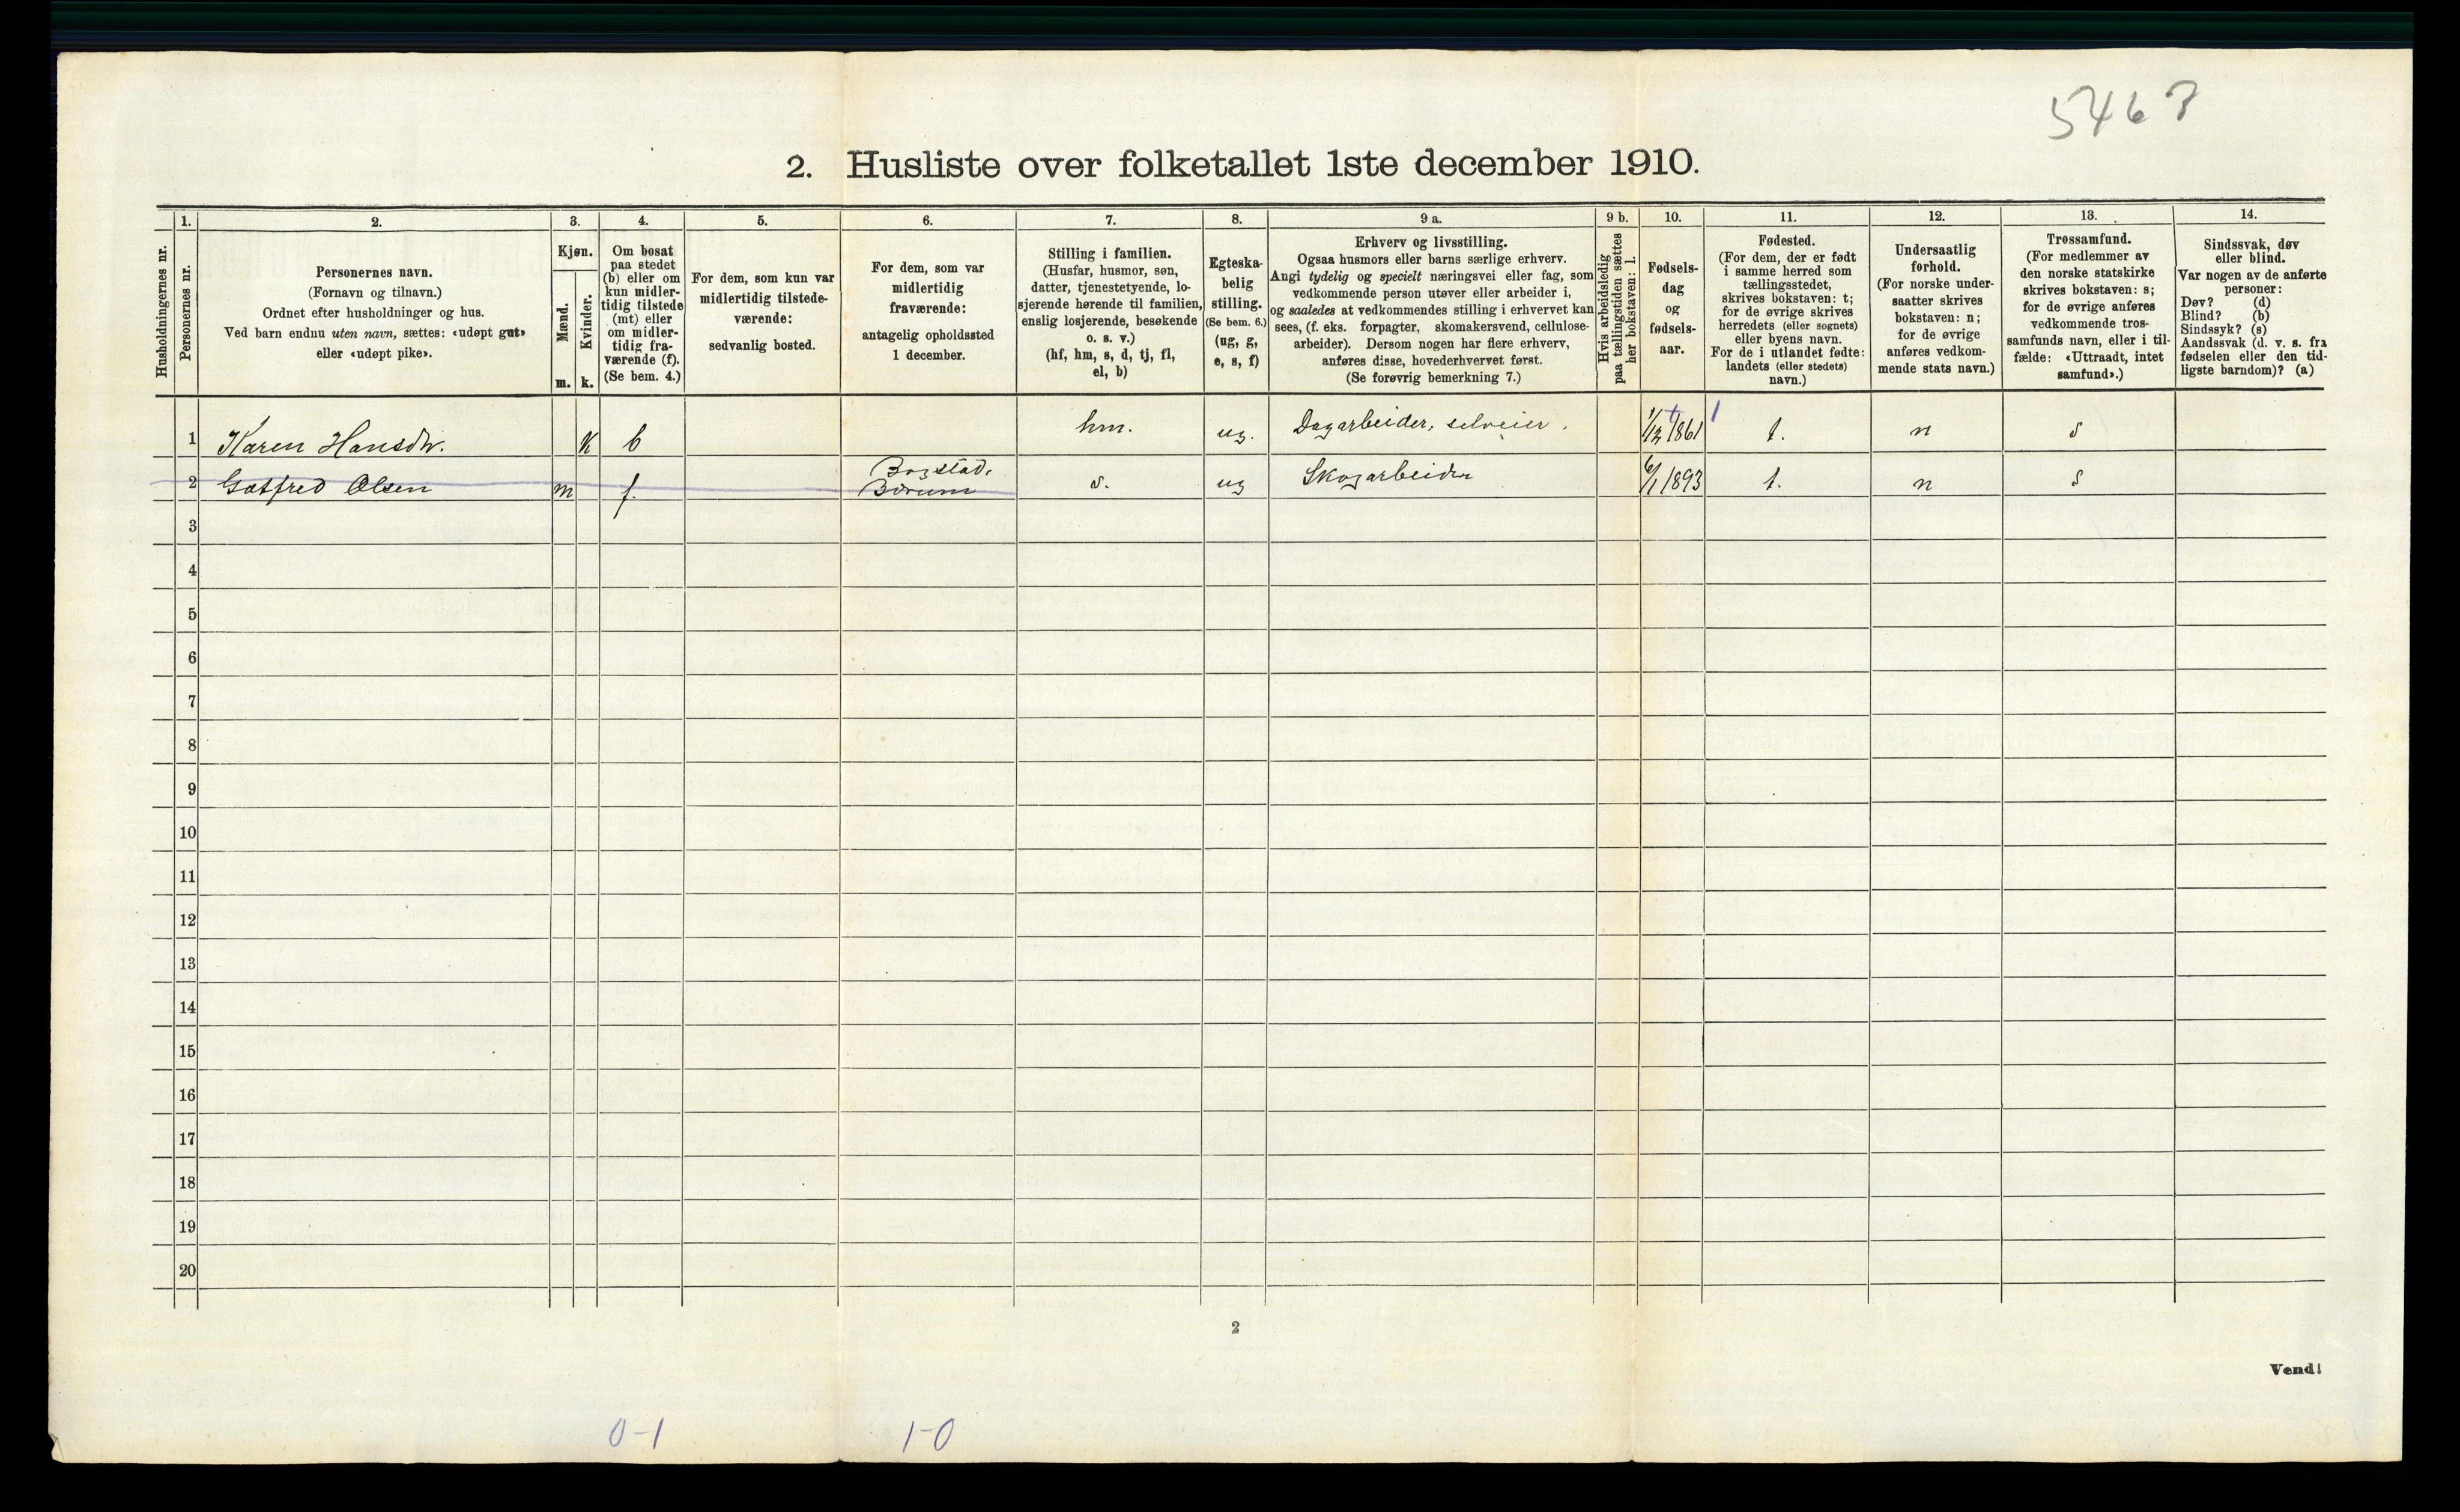 5463
2. Husliste over folketallet 1ste december 1910.
Husholdningernes nr.
1.
Personernes nr.
2.
Personernes navn.
(Fornavn og tilnavn.)
Ordnet efter husholdninger og hus.
Ved barn endnu uten navn, sættes: «udøpt gut»
eller «udøpt pike».
3.
Kjøn.
Mænd.
m.
Kvinder.
k.
4.
Om bosat
paa stedet
(b) eller om
kun midler-
tidig tilstede
(mt) eller
om midler-
tidig fra-
værende (f).
(Se bem. 4.)
5.
For dem, som kun var
midlertidig tilstede-
værende:
sedvanlig bosted.
6.
For dem, som var
midlertidig
fraværende:
antagelig opholdssted
1 december.
7.
Stilling i familien.
(Husfar, husmor, søn,
datter, tjenestetyende, lo-
sjerende hørende til familien,
enslig losjerende, besøkende
o. s. v.)
(hf, hm, s, d, tj, fl,
el, b)
8.
Egteska-
belig
stilling.
(Se bem. 6.)
(ug, g,
e, s, f)
9 a.
Erhverv og livsstilling.
Ogsaa husmors eller barns særlige erhverv.
Angi tydelig og specielt næringsvei eller fag, som
vedkommende person utøver eller arbeider i,
og saaledes at vedkommendes stilling i erhvervet kan
sees, (f. eks. forpagter, skomakersvend, cellulose-
arbeider). Dersom nogen har flere erhverv,
anføres disse, hovederhvervet først.
(Se forøvrig bemerkning 7.)
9 b.
Hvis arbeidsledig
paa tællingstiden sættes
her bokstaven: l.
10.
Fødsels-
dag
og
fødsels-
aar.
11.
Fødested.
(For dem, der er født
i samme herred som
tællingsstedet,
skrives bokstaven: t;
for de øvrige skrives
herredets (eller sognets)
eller byens navn.
For de i utlandet fødte:
landets (eller stedets)
navn.)
12.
Undersaatlig
forhold.
(For norske under-
saatter skrives
bokstaven: n;
for de øvrige
anføres vedkom-
mende stats navn.)
13.
Trossamfund.
(For medlemmer av
den norske statskirke
skrives bokstaven: s;
for de øvrige anføres
vedkommende tros-
samfunds navn, eller i til-
fælde: «Uttraadt, intet
samfund».)
14.
Sindssvak, døv
eller blind.
Var nogen av de anførte
personer:
Døv? (d)
Blind? (b)
Sindssyk? (s)
Aandssvak (d. v. s. fra
fødselen eller den tid-
ligste barndom)? (a)
1 Karen Hansdtr. k b hm. ug. Dagarbeider, selveier. 1/12 1861 t. n s
2 Gotfred Olsen m f. Bogstad, Bærum s. ug Skogarbeider 6/1 1893 t. n s
3
4
5
6
7
8
9
10
11
12
13
14
15
16
17
18
19
20
2
Vend!
0-1 1-0